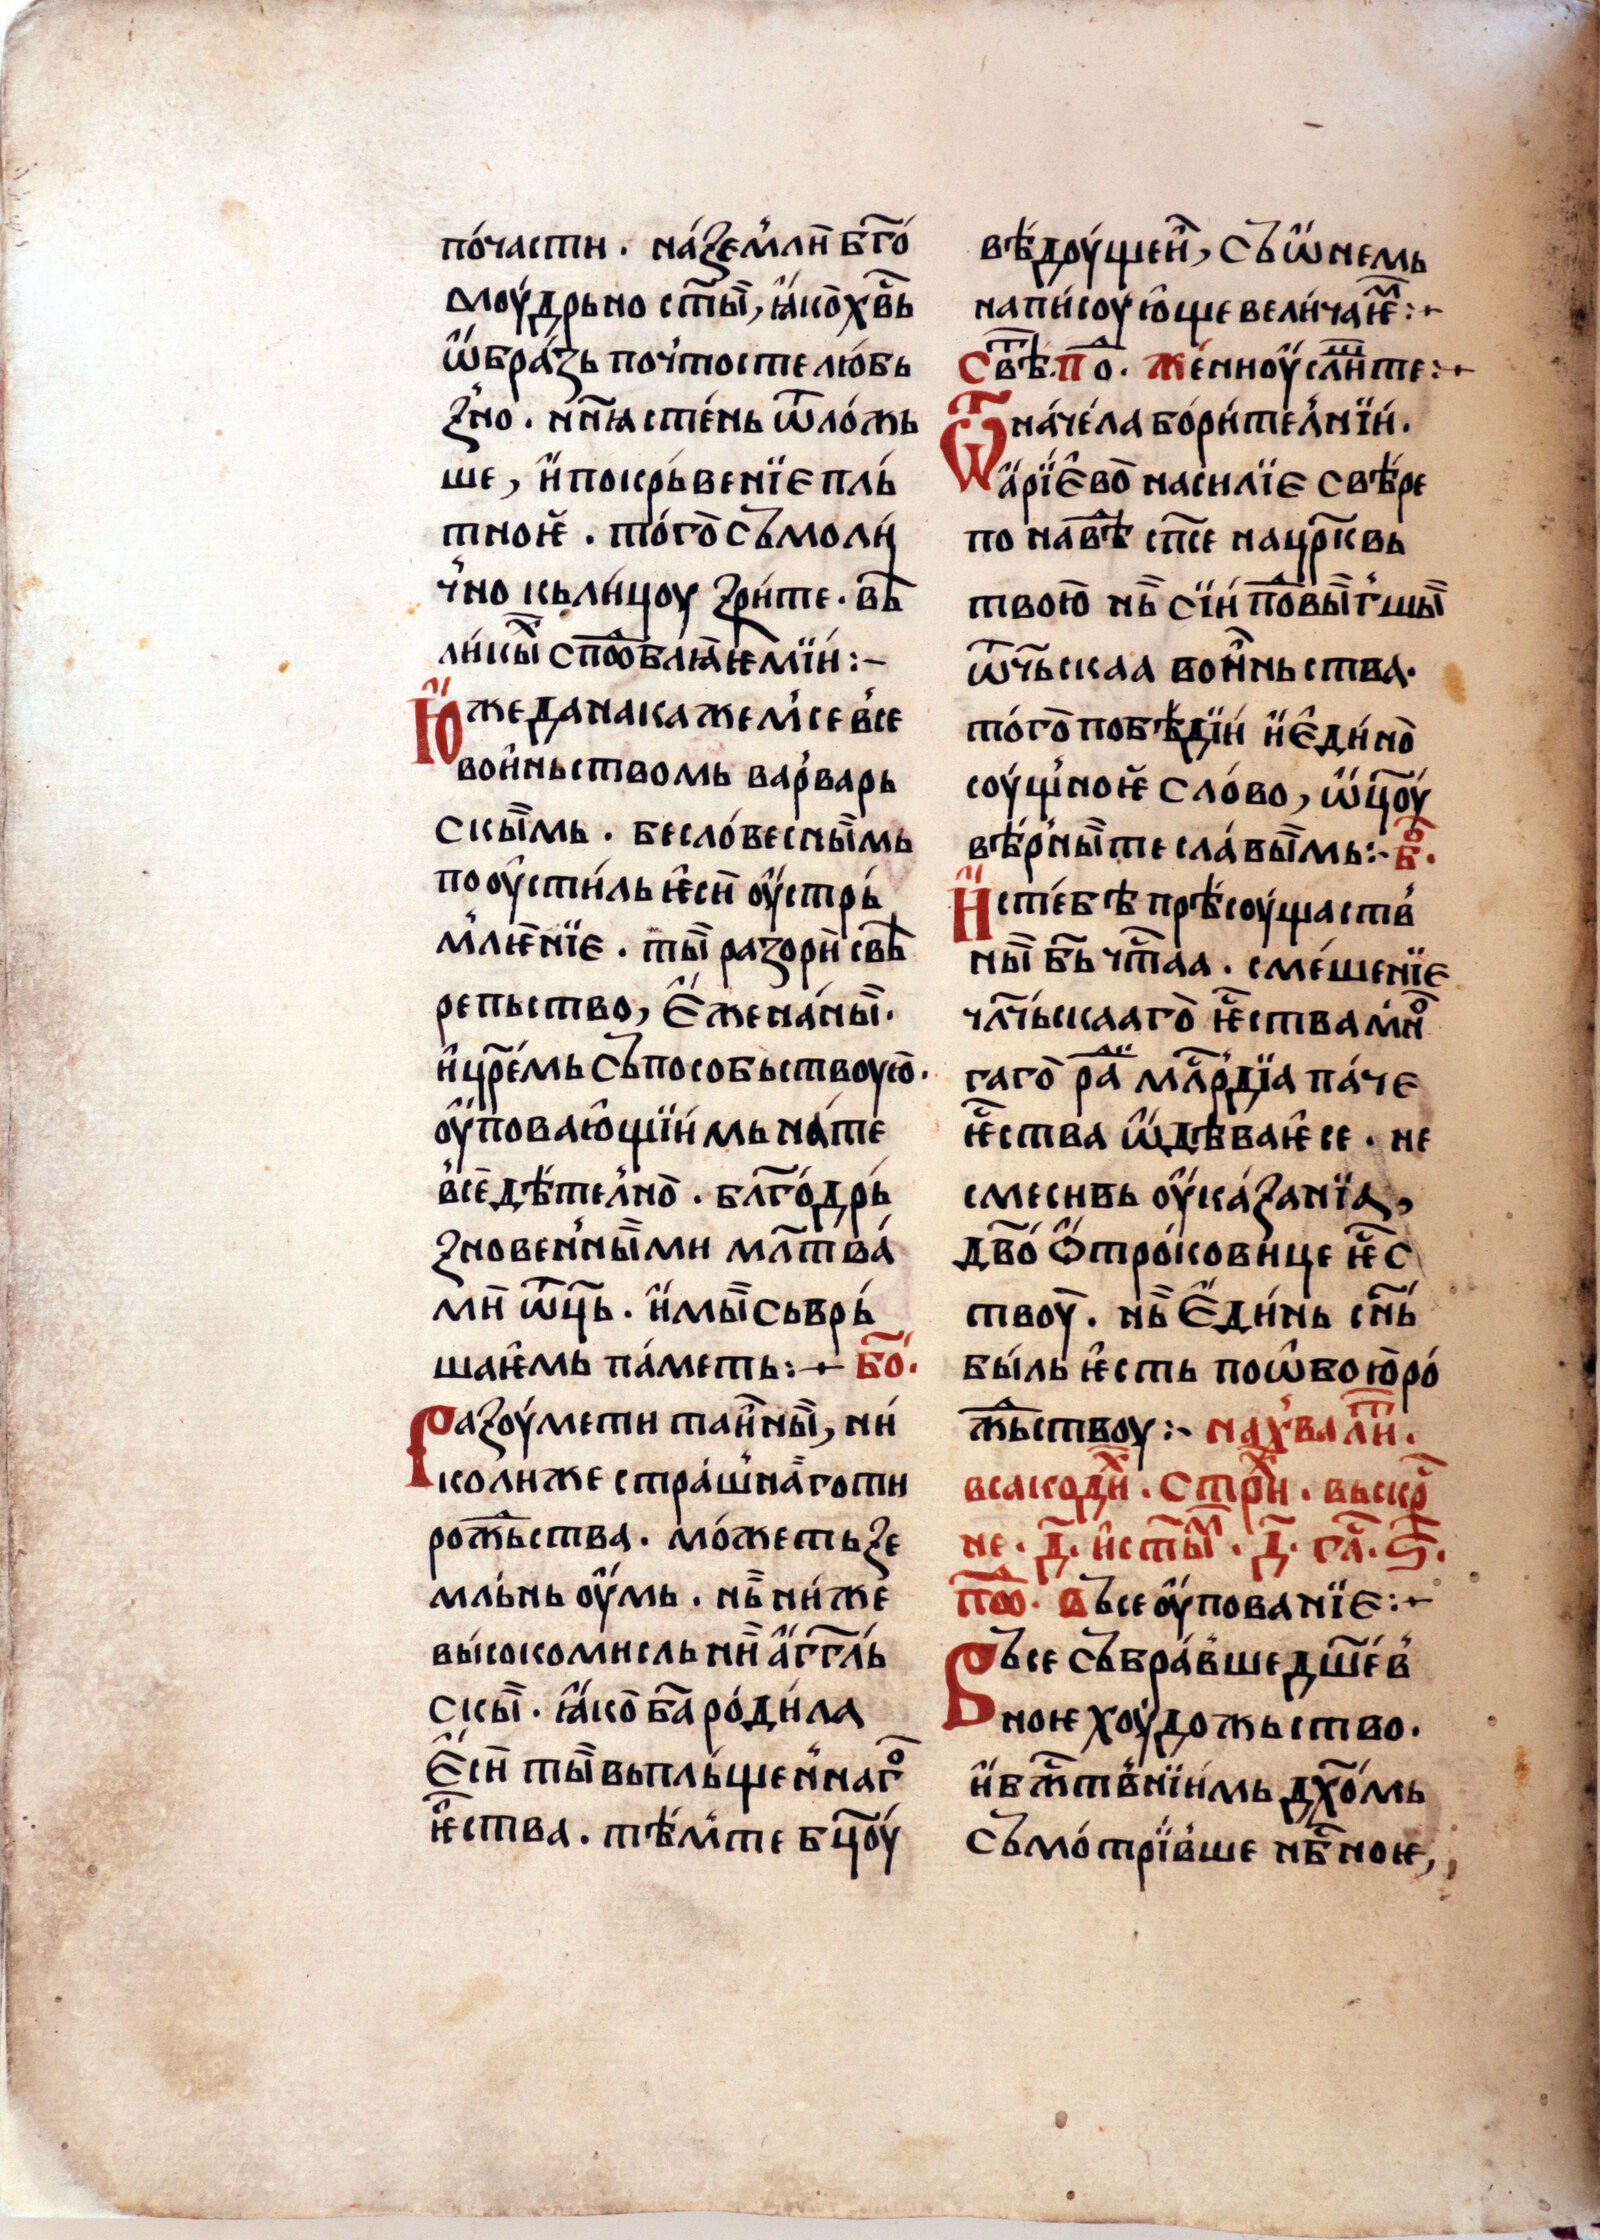 по́части . на́ꙁем҆лѝ бг҃о́
моу́дрьно ст҃ы̏, ꙗ҆́ко̀ хв҃ь
ѡ҆́бра́ꙁь поч҆тосте лю́бь
ꙁ҆но . нн҃ꙗ сте́нь ѿло́жь
ше , и҆ покрь́венїе пль́
тноѥ҆ . то́го̀ съмоли́
ч҆но кьли́цоу ꙁри́те . вь̀
ли́кы̏ⷯ спⷣо́блꙗ҆ѥмїи́ :–
Ю҆́же да на́кажем҆се в҆се
вои҆ньствомь вар҆варь
скы̏мь . бесло́весны̏мь
пооу҆сти́ль ѥ҆сѝ оу҆стрь́
м҆лѥ҆нїе . ты̏ раꙁорѝ свѣ̀
репьство, е҆́же на́ны̏.
и҆ цр҃е́мь съпособьствоую̀ .
оу҆пова́ю҆щїи́мь на́те
в҆сѐдѣ́тел҆но̀ . бл҃го́дрь́
ꙁновен҆ны̏ми мл҃тва́
мѝ ѿц҃ь . и҆мы̏ сьврь́
шаѥ҆мь па́меть :+ бо҃́.
Раꙁоу́мети таи҆́ны̏, ни́
коли́же стра́ш҆на̀го ти
рожⷣьства . мо́жеть ꙁе
мль́нь оу҆́мь . нь̀ ни́же
вы́сокомисль нѝ а҆́гг҃ль́
скы̏ . ꙗ҆́ко̀ ба҃ ро́ди́ла
е҆́сѝ ты̏ вьпль́щен҆наг҆ⷪ
ѥ҆ⷭства . тѣ́м҆те бц҃оу́
вѣ́дроу́щеи҆, съ ѡ҆́немь
напи́соую҆ще вели́чаѥ҆ⷨ :+
Свⷮѣ́.пⷣо . же́нноу́ слꙑшⷲите :+
Ѿна́че́ла бо́ри́тел҆нїи́ .
а҆́рїе҆во̀ наси́лїе свѣ́ре
по на́вⷣѣ сп҃се на цр҃ковь
твою̀ нь̀ сїи́ пⷣовы̏г҆шы̏
ѿч҃ьскаа вои҆ньства .
то́го̀ побѣ́дїи́ и҆ е҆ди́но̀
соущ҆ноѥ̀ сло́во, ѡ҆́ц҃оу́
вѣ́р҆ны̏ те сла́вы̏мь :· бⷢ.
И҆́с те́бѣ прѣ́соущаств҆
ны̏ бь҃ чтⷭа́а . сме́шенїе
чл҃чь́скааго̀ ѥ҆ⷭства мн҆ⷪ
гаго̀ ра́ⷣи мл҃рⷭдїа па́че
ѥ҆ⷭства ѡ҆́дѣваѥ҆се . не
смесивь оу҆ка́ꙁанїа,
дво҃́ о҆́тро́кови҆це ѥ҆ⷭс
твоу̀ . нь̀ е҆́ди́нь сн҃ь́
бы́ль ѥ҆сть поѡ҆́бою̀ро́
жⷣьствоу :· на х҆валⷮи .
всакодн҃иⷯ . Стрⷯи . вьскрⷭ
не . д҃ . и҆ ст҃ы̏ⷨ . д҃ . гла́ⷭ . ѕ҃ .
пⷣоⷪ . Въсе оу҆пова́нїе :+
Въсе събра́в҆ше дш҃е́в҆
ноѥ хоу́дожьство .
и҆ бжⷭтв҆нїи́мь дх҃о́мь
съмо́трїв҆ше нбⷭноѥ ,